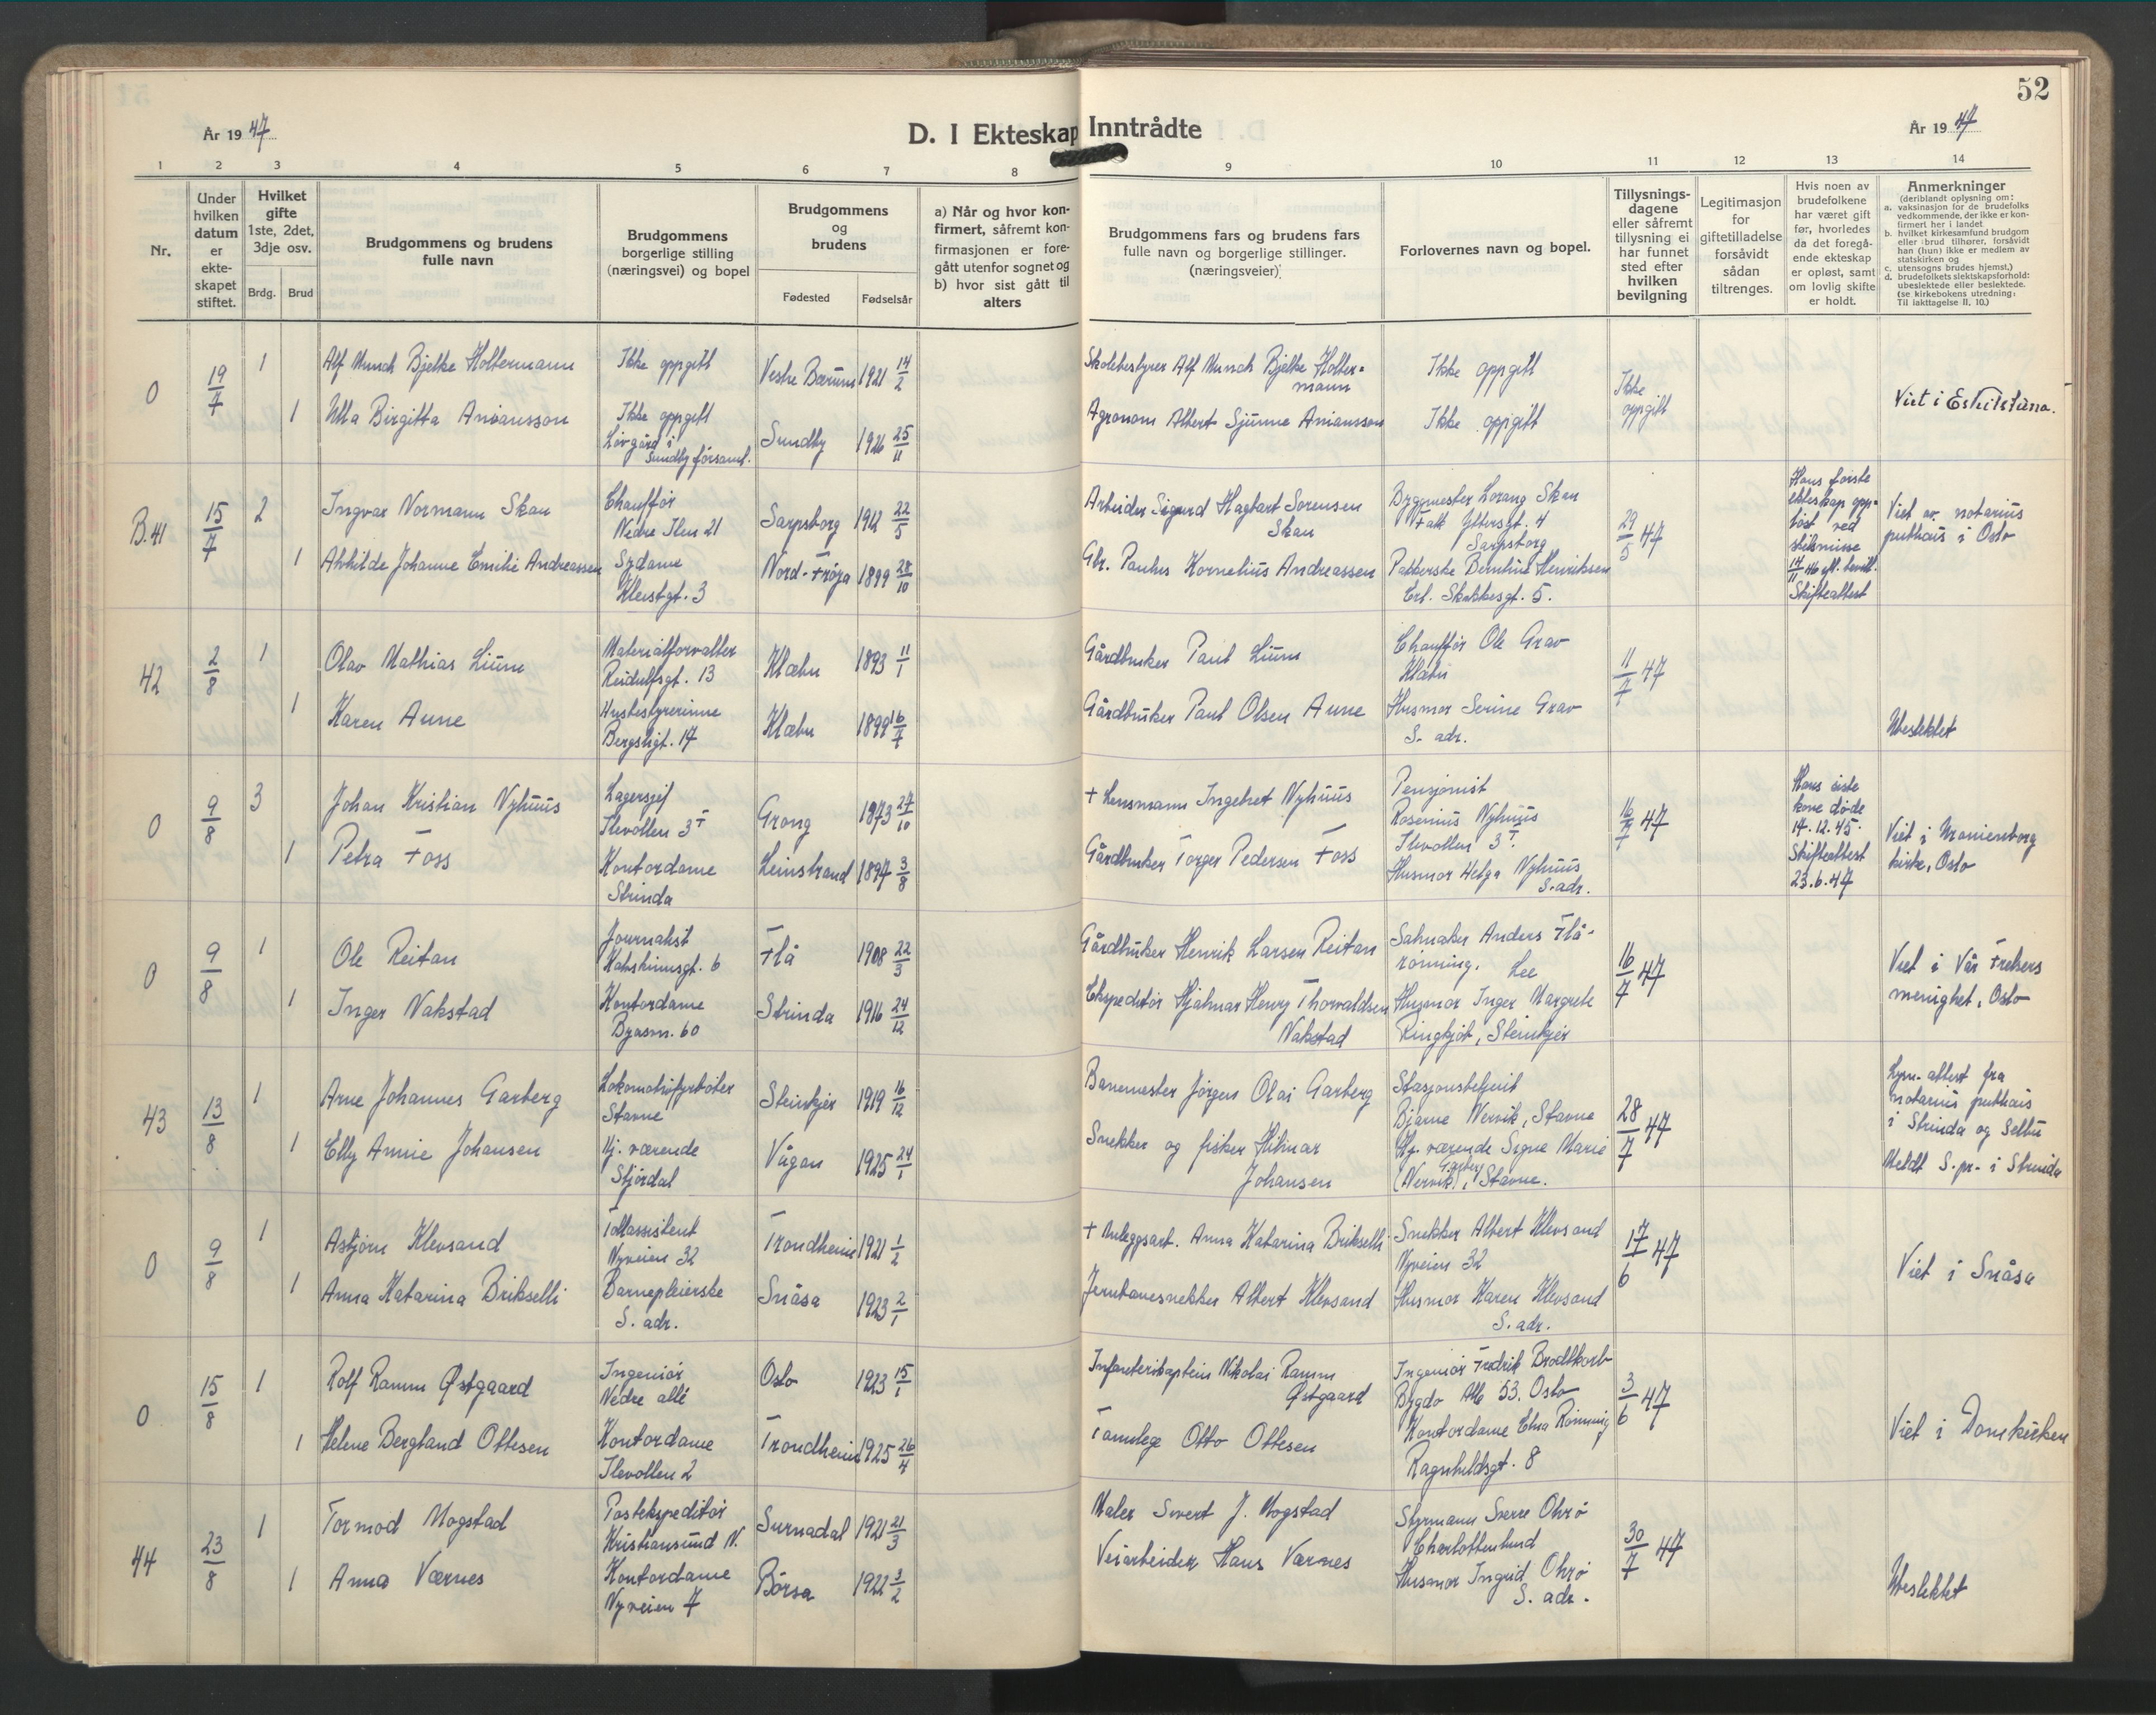 52
År 1947
D. I Ekteskap Inntrådte
År 1947
1 2 3 4 5 6 7 8 9 10 11 12 13 14
Nr.
Under hvilken datum er ekte-skapet stiftet.
Hvilket gifte 1ste, 2det, 3dje osv.
Brdg. Brud
Brudgommens og brudens fulle navn
Brudgommens borgerlige stilling (næringsvei) og bopel
Brudgommens og brudens
Fødested Fødselsår
a) Når og hvor kon-firmert, såfremt kon-firmasjonen er fore-gått utenfor sognet og b) hvor sist gått til alters
Brudgommens fars og brudens fars fulle navn og borgerlige stillinger. (næringsveier).
Forlovernes navn og bopel.
Tillysnings-dagene eller såfremt tillysning ei har funnet sted efter hvilken bevilgning
Legitimasjon for giftetilladelse forsåvidt sådan tiltrenges.
Hvis noen av brudefolkene har været gift før, hvorledes da det foregå-ende ekteskap er opløst, samt om lovlig skifte er holdt.
Anmerkninger
(deriblandt oplysning om:
a. vaksinasjon for de brudefolks vedkommende, der ikke er kon-firmert her i landet.
b. hvilket kirkesamfund brudgom eller brud tilhører, forsåvidt han (hun) ikke er medlem av statskirken og
c. utensogns brudes hjemst.)
d. brudefolkets slektskapsforhold: ubeslektede eller beslektede.
(se kirkebokens utredning: Til iakttagelse II. 10.)
0 19/7 1 Alf Munch Bjelke Holtermann Ikke oppgitt Vestre Bærum 1921 14/2 Skolebestyrer Alf Munch Bjelke Holter-mann Ikke oppgitt Ikke oppgitt Viet i Eskilstuna.
1 Ulla Birgitta Aniansson Ikke oppgitt Lövgård i Sundby församl. Sundby 1926 25/11 Agronom Albert Sjunne Aniansson Ikke oppgitt
B.41 15/7 2 Ingvar Normann Skau Chauffør Nedre Ilen 21 Sarpsborg 1912 22/5 Arbeider Sigurd Hagbart Sørensen Skau Byggmester Lorang Skau Falk Yttersgt. 4 Sarpsborg 29/5 47 Hans første ekteskap opp-løst ved skilsmisse 14/11 46 efl. bevill. Skifteattest Viet av notarius publicus i Oslo
1 Alvhilde Johanne Emilie Andreassen Sydame Kleistgt. 3 Nord-Frøya 1899 28/10 Gbr. Paulus Kornelius Andreassen Pakkerske Bernhine Henriksen Erl. Skakkesgt. 5.
42 2/8 1 Olav Mathias Lium Materialforvalter Reidulfsgt. 13 Klæbu 1893 11/1 Gårdbruker Paul Lium Chauffør Ole Grav Klæbu 11/7 47
1 Karen Aune Husbestyrerinne Bergsligt. 17 Klæbu 1899 16/7 Gårdbruker Paul Olsen Aune Husmor Serine Grav S. adr. Ubeslektet
0 9/8 3 Johan Kristian Nyhuus Lagersjef Ilevollen 3 I Grong 1873 27/10 + Lensmann Ingebret Nyhuus Pensjonist Rosenius Nyhuus Ilevollen 3 I. 16/7 47 Hans siste kone døde 14.12.45. Skifteattest 23.6.47 Viet i Uranienborg kirke, Oslo
1 Petra Foss Kontordame Strinda Leinstrand 1897 3/8 Gårdbruker Torger Pedersen Foss Husmor Helga Nyhuus S. adr.
0 9/8 1 Ole Reitan Journalist Flå 1908 22/3 Gårdbruker Henrik Larsen Reitan Salmaker Anders Flå-rønning. Lee 16/7 47 Viet i Vår Frelsers menighet, Oslo
1 Inger Nakstad Kontordame Byåsm. 60 Strinda 1916 24/12 Ekspeditør Hjalmar Henry Thorvaldsen Nakstad Husmor Inger Margrete Ringkjøb, Steinkjer
43 13/8 1 Arne Johannes Garberg Lokomotivfyrbøter Stavne Steinkjer 1919 16/12 Banemester Jørgen Olai Garberg Stasjonsbetjent Bjarne Wervik, Stavne 28/7 47 Lysn. attest fra notarius publicus i Strinda og Selbu
1 Elly Annie Johansen Hj. værende Stjørdal Vågan 1925 24/1 Snekker og fisker Hilmar Johansen Hj. værende Signe Marie Garberg (Wervik), Stavne. Meldt S.pr. i Strinda
0 9/8 1 Asbjørn Klevsand Tollassistent Nyveien 32 Trondheim 1921 1/2 + Anleggsarb. Anna Katarina Brikselli Snekker Albert Klevsand Nyveien 32 17/6 47 Viet i Snåsa
1 Anna Katarina Brikselli Barnepleierske S. adr. Snåsa 1923 2/1 Jernbanesnekker Albert Klevsand Husmor Karen Klevsand S. adr.
0 15/8 1 Rolf Ramm Østgaard Ingeniør Nedre allé Oslo 1923 15/1 Infanterikaptein Nikolai Ramm Østgaard Ingeniør Fredrik Brodtkorb Bygdø Alle 53. Oslo 3/6 47 Viet i Domkirken
1 Helene Bergland Ottesen Kontordame Ilevollen 2 Trondheim 1925 26/4 Tannlege Otto Ottesen Kontordame Elna Rønning Ragnhildsgt. 8
44 23/8 1 Tormod Mogstad Postekspeditør Kristiansund N. Surnadal 1921 21/3 Maler Sivert J. Mogstad Styrmann Sverre Ohrø Charlottenlund 30/7 47
1 Anna Værnes Kontordame Nyveien 7 Børsa 1922 3/2 Veiarbeider Hans Værnes Husmor Ingrid Ohrø S. adr. Ubeslektet